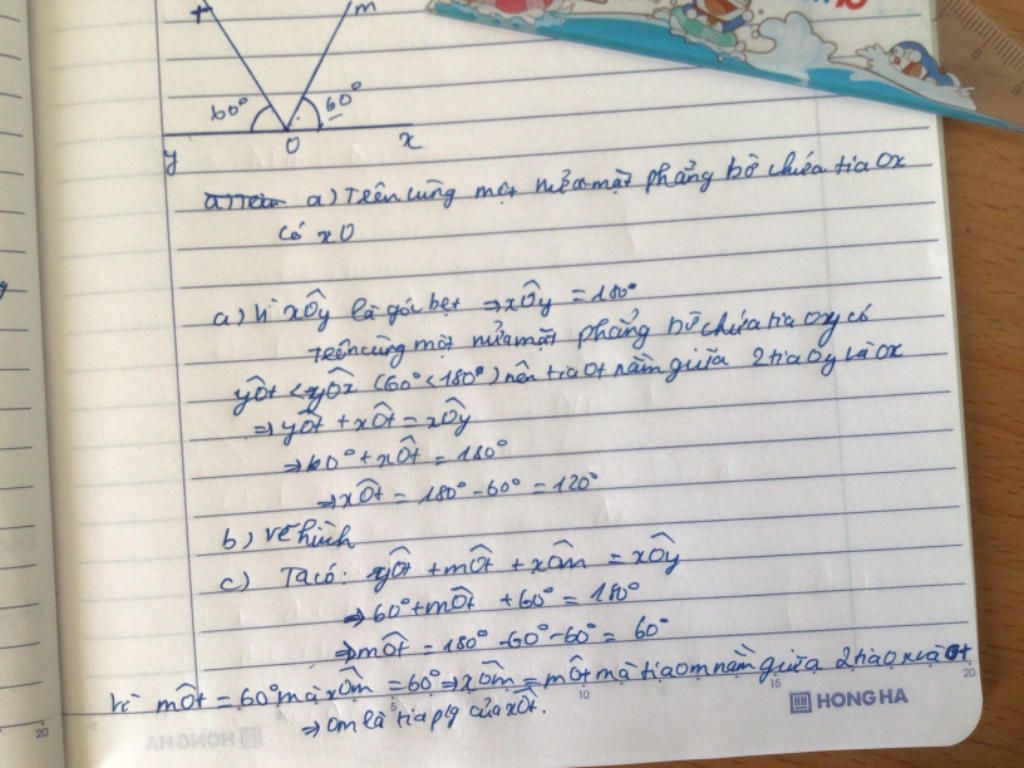 t m
60° 60°
y O x
a) Trên cùng một nửa mặt phẳng bờ chứa tia Ox
có xO
a) Vì xÔy là góc bẹt ⇒ xÔy = 180°
Trên cùng một nửa mặt phẳng bờ chứa tia Oy có
yÔt < yÔx (60° < 180°) nên tia Ot nằm giữa 2 tia Oy và Ox
⇒ yÔt + xÔt = xÔy
⇒ 60° + xÔt = 180°
⇒ xÔt = 180° - 60° = 120°
b) vẽ hình
c) Ta có: yÔt + mÔt + xÔm = xÔy
⇒ 60° + mÔt + 60° = 180°
⇒ mÔt = 180° - 60° - 60° = 60°
Vì mÔt = 60° mà xÔm = 60° ⇒ xÔm = mÔt mà tia Om nằm giữa 2 tia Ox và Ot
5 10 15 20
⇒ Om là tia p/g của xÔt.
HH HONG HA
20
HONG HA
8
9